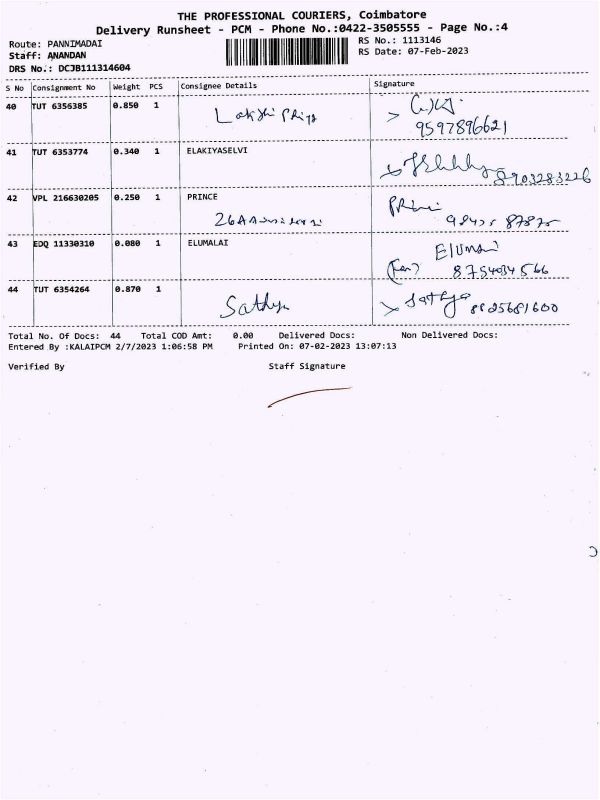 THE PROFESSIONAL COURIERS, Coimbatore
Delivery Runsheet - PCM - Phone No.:0422-3505555 - Page No.:4
Route: PANNIMADAI
RS No.: 1113146
Staff: ANANDAN
RS Date: 07-Feb-2023
DRS No.: DCJB111314604
S No Consignment No Weight PCS Consignee Details Signature
40 TUT 6356385 0.850 1 Lakshi Priya
9597896621
41 TUT 6353774 0.340 1 ELAKIYASELVI
8903283226
42 VPL 216630205 0.250 1 PRINCE
43 EDQ 11330310 0.080 1 ELUMALAI
8754034566
44 TUT 6354264 0.870 1 Sathya Sathya
8825681600
Total No. Of Docs: 44 Total COD Amt: 0.00 Delivered Docs: Non Delivered Docs:
Entered By :KALAIPCM 2/7/2023 1:06:58 PM Printed On: 07-02-2023 13:07:13
Verified By Staff Signature